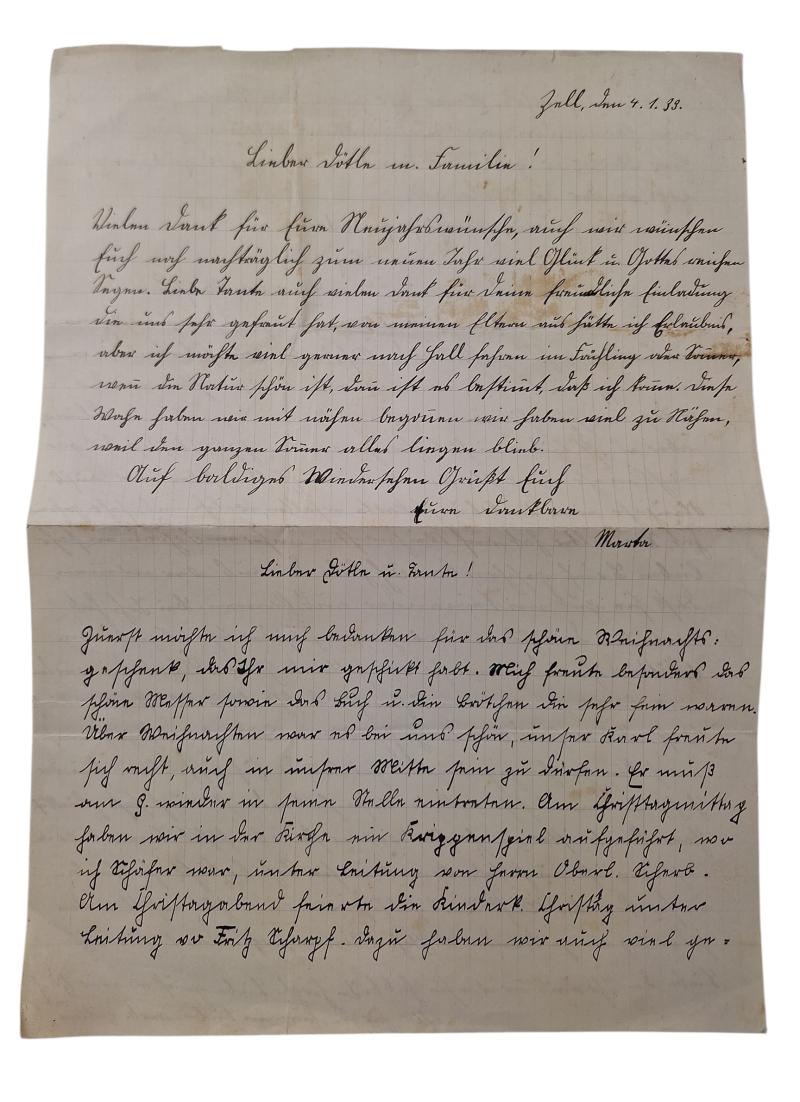 Zell, den 4. 1. 39.
Lieber Dötle m. Familie!
Vielen Dank für Eure Neujahrswünsche, auch wir wünschen
Euch noch nachträglich zum neuen Jahr viel Glück u. Gottes reichen
Segen. Liebe Tante auch vielen Dank für Deine freundliche Einladung
die uns sehr gefreut hat, von meinen Eltern aus hätte ich Erlaubnis,
aber ich möchte viel gerner nach Hall fahren im Frühling oder Som̄er,
wen̄ die Natur schön ist, dan̄ ist es bestim̄t, daß ich kom̄e. Diese
Woche haben wir mit nähen begon̄en wir haben viel zu Nähen,
weil den ganzen Som̄er alles liegen blieb.
Auf baldiges Wiedersehen Grüßt Euch
Eure dankbare
Marta
Lieber Dötle u. Tante!
Zuerst möchte ich mich bedanken für das schöne Weihnachts:
geschenk, das Ihr mir geschickt habt. Mich freute besonders das
schöne Messer sowie das Buch u. die Brötchen die sehr fein waren.
Über Weihnachten war es bei uns schön, unser Karl freute
sich recht, auch in unsrer Mitte sein zu dürfen. Er muß
am 9. wieder in seine Stelle eintreten. Am Christtagmittag
haben wir in der Kirche ein Krippenspiel aufgeführt, wo
ich Schäfer war, unter Leitung von Herrn Oberl. Scherb.
Am Christagabend feierte die Kinderk. Christag unter
Leitung vo Fritz Scharpf. Dazu haben wir auch viel ge=